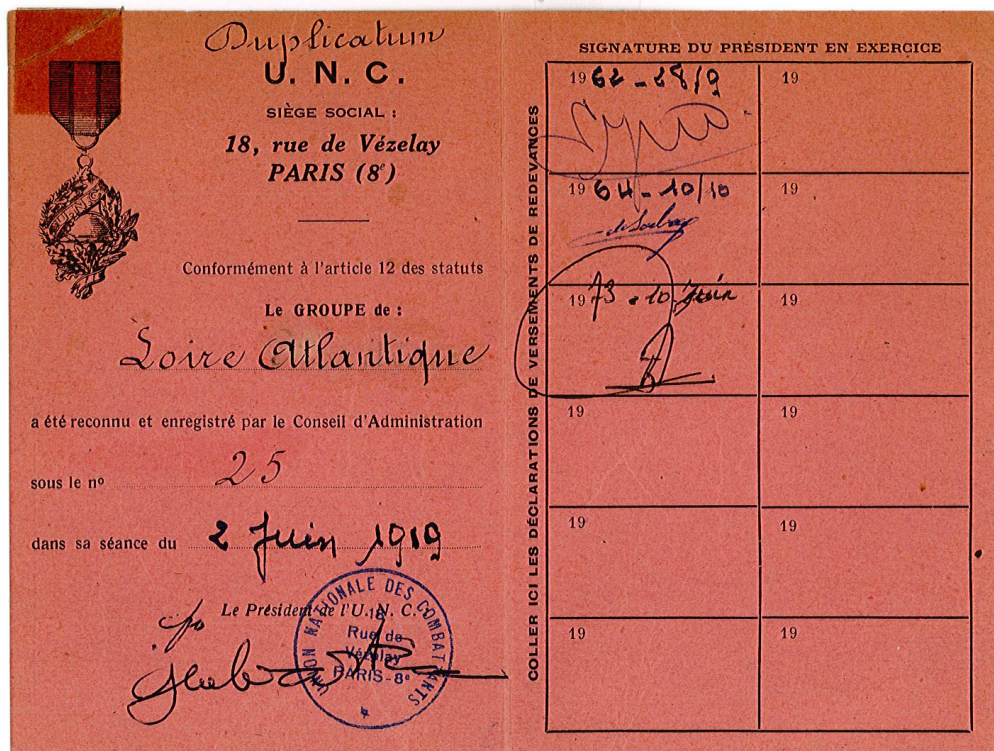 Duplicatum
U. N. C.
SIÈGE SOCIAL :
18, rue de Vézelay
PARIS (8e)
U.N.C.
Conformément à l'article 12 des statuts
Le GROUPE de :
Loire Atlantique
a été reconnu et enregistré par le Conseil d'Administration
sous le nº 25
dans sa séance du 2 Juin 1919
Le Président de l'U. N. C.
UNION NATIONALE DES COMBATTANTS
18
Rue de
Vézelay
PARIS-8e
COLLER ICI LES DÉCLARATIONS DE VERSEMENTS DE REDEVANCES
SIGNATURE DU PRÉSIDENT EN EXERCICE
1962 - 28/9
19
1964 - 10/10
19
1973 - 10 Juin
19
19
19
19
19
19
19